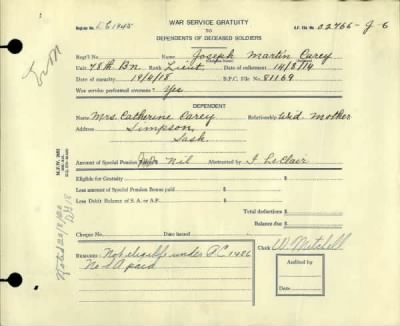 WAR SERVICE GRATUITY
TO
DEPENDENTS OF DECEASED SOLDIERS
Register No. DC 1945
S.F. File No. 02766-J-6
Reg'l No. Name Joseph Martin Carey
Christian Name Surname
Unit 78th Bn Rank Lieut. Date of enlistment 14/8/14
Date of casualty 19/4/18 B.P.C. File No. 81169
Was service performed overseas? Yes
DEPENDENT
Name Mrs. Catherine Carey Relationship Wid. Mother
Address Simpson,
Sask.
Amount of Special Pension Nil Abstracted by J. LeClair
Eligible for Gratuity $
Less amount of Special Pension Bonus paid $
Less Debit Balance of S. A. or A.P. $
Total deductions $
Balance due $
Cheque No. Date issued
Remarks: Not eligible under P.C. 1486
No S A paid
Clerk W. Mitchell
Audited by
Date